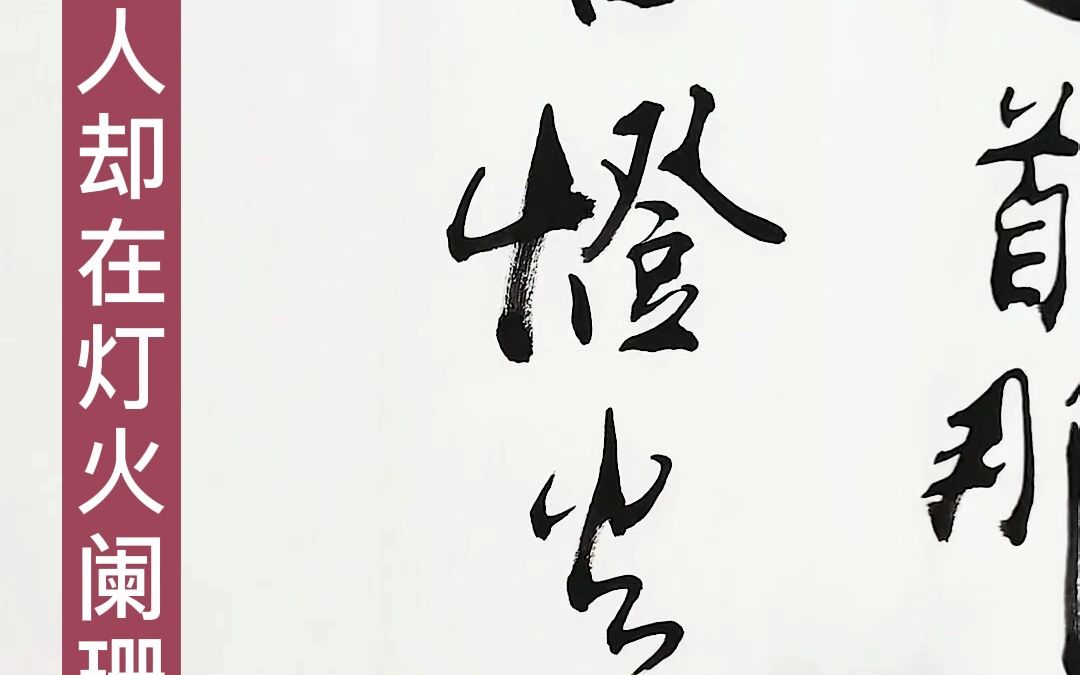 首那
燈火
人却在灯火阑珊